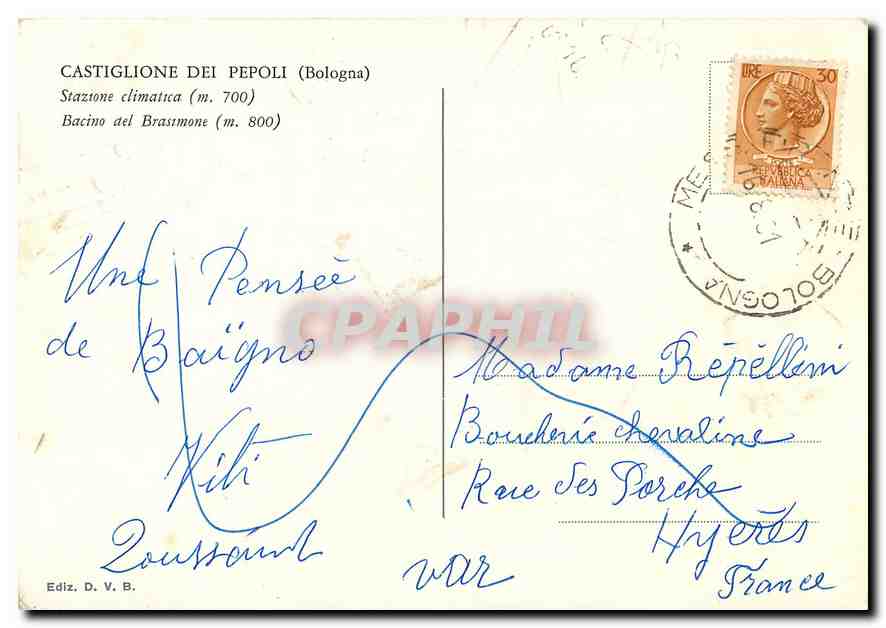 CASTIGLIONE DEI PEPOLI (Bologna)
Stazione climatica (m. 700)
Bacino del Brasimone (m. 800)
LIRE 30
REPVBBLICA
ITALIANA
BOLOGNA
Une Pensée
de Baïgno
Kiki
Toussaint
CPAPHIL
Madame Répéllini
Boucherie chevaline
Rue des Porche
Hyères
var
France
Ediz. D. V. B.